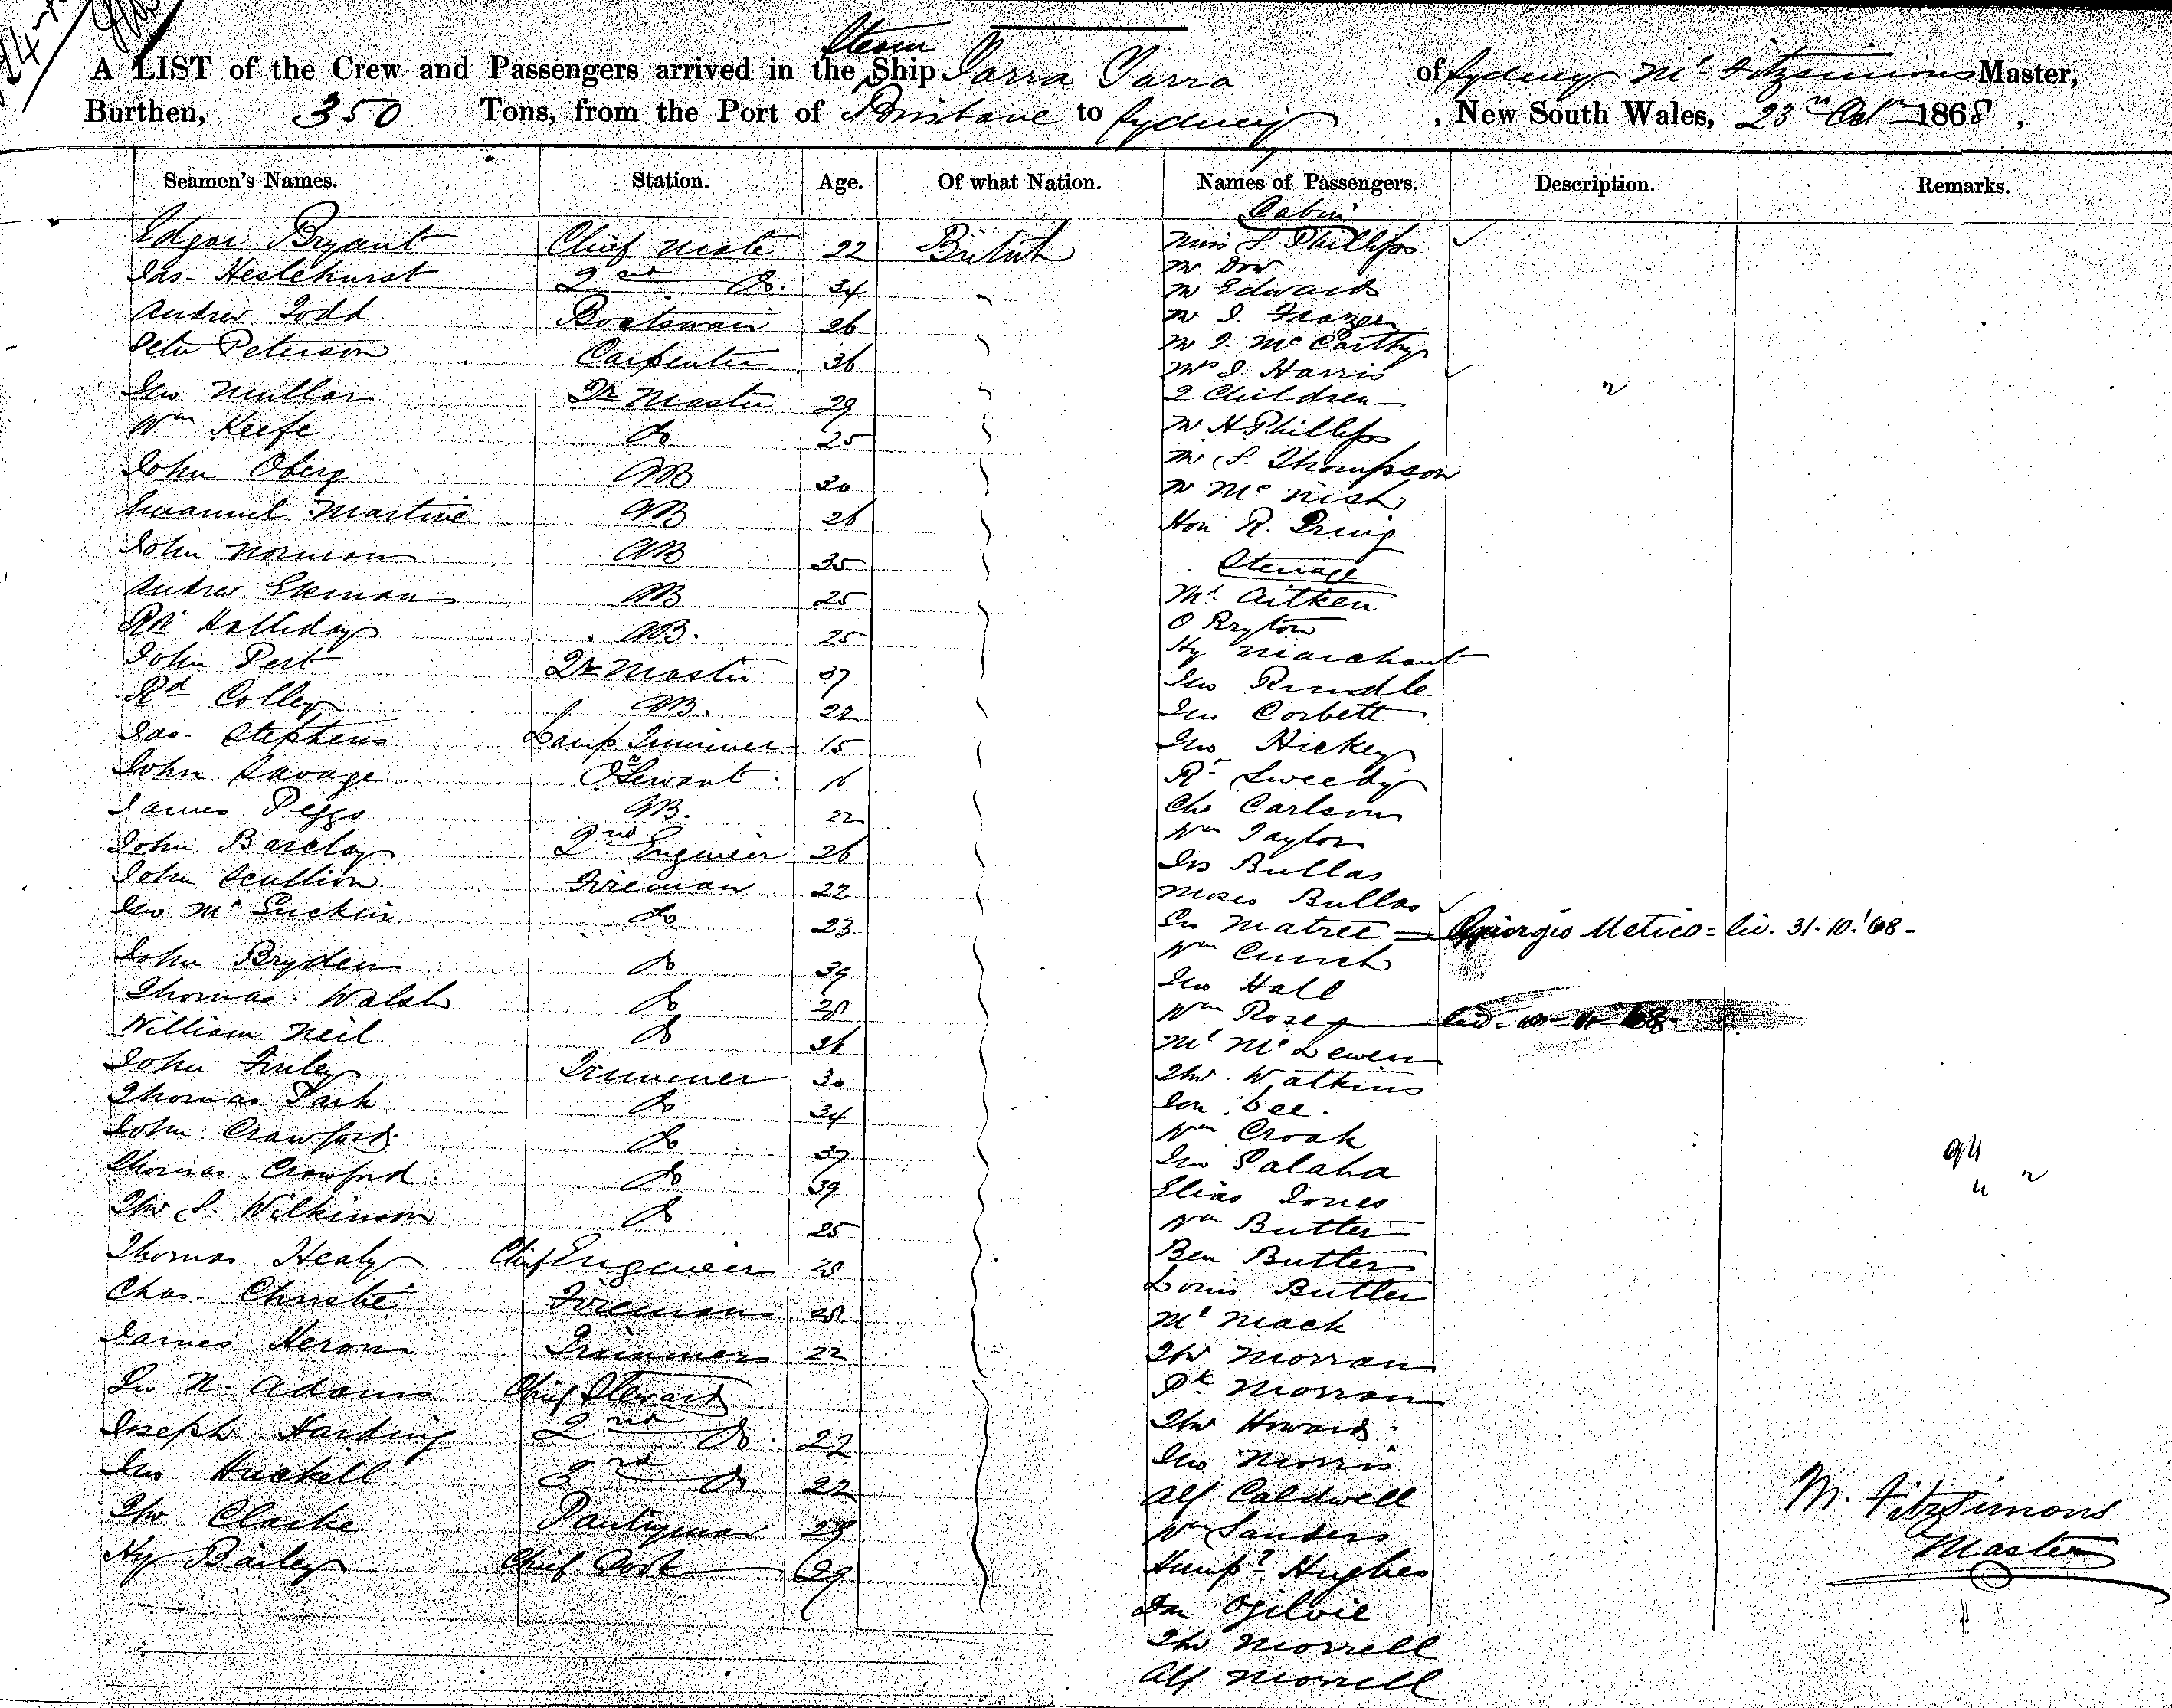 A LIST of the Crew and Passengers arrived in the Steam Ship Yarra Yarra of Sydney M. Fitzsimons Master,
Burthen, 350 Tons, from the Port of Brisbane to Sydney, New South Wales, 23rd Oct 1868,
Seamen's Names. Station. Age. Of what Nation. Names of Passengers. Description. Remarks.
Cabin
Edgar Bryant Chief Mate 22 British Miss S. Phillips
Jas. Heslehurst 2nd Do. 34
Andrew Todd Boatswain 26
Peter Peterson Carpenter 36
Jno Mullar Qr Master 29
Wm Keefe Do 25
John Oberg AB 30
Emanuel Martine AB 26
John Norman AB 35
Andrew Ekman AB 25
Rt Halliday AB. 25
John Pert Qr Master 37
Rd Colley AB. 22
Jas. Stephens Lamp Trimmer 15
John Savage Servant 16
James Peggs AB. 22
John Barclay 2nd Engineer 26
John Scullion Fireman 22
Jno Mc 23
John Bryden Do 39
Thomas Walsh Do 28
William Neil Do 26
John Finley Trimmer 30
Thomas Park Do 34
John Crawford Do 37
Thomas Crawford Do 39
Thos S. Wilkinson Do 25
Thomas Healy Chief Engineer 28
Chas. Christie Fireman 28
James Heron Trimmer 22
Jno N. Adams Chief Steward
Joseph Harding 2nd Do. 22
Jno Huckell 3rd Do 22
Thos Clarke Pantryman 23
Hy Bailey Chief Cook 29
Mr Dow
Mr Edwards
Mr J. Frazer
Mr J. McCarthy
Mrs J. Harris
2 Children
Mr H Phillips
Mr S. Thompson
Mr McNish
Hon R. Pring
Steerage
Mt. Aitken
O Bryton
Hy Marchant
Jno Rundle
Jno Corbett
Jno Hickey
Rt Sweedy
Chs Carlson
Wm Taylor
Jas Bullas
Moses Bullas
Matree = Giorgio Metico = liv. 31.10.'68-
Wm
Jno Hall
Wm Rose
Mt McLewen
Thos. Watkins
Jon Lee.
Wm Croak
Jno Palaha
Elias Jones
Wm Butler
Ben Butler
Louis Butler
Mt. Mack
Thos Morran
Pk Morran
Thos Howard
Jno Morris
Alf Caldwell
Wm Sanders
Humpy Hughes
Jas Ogilvie
Thos Morrell
Alf Morrell
M. Fitzsimons
Master